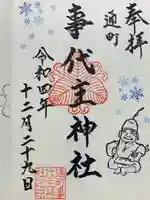 奉拝
通町
事代主神社
令和四年
十二月二十九日